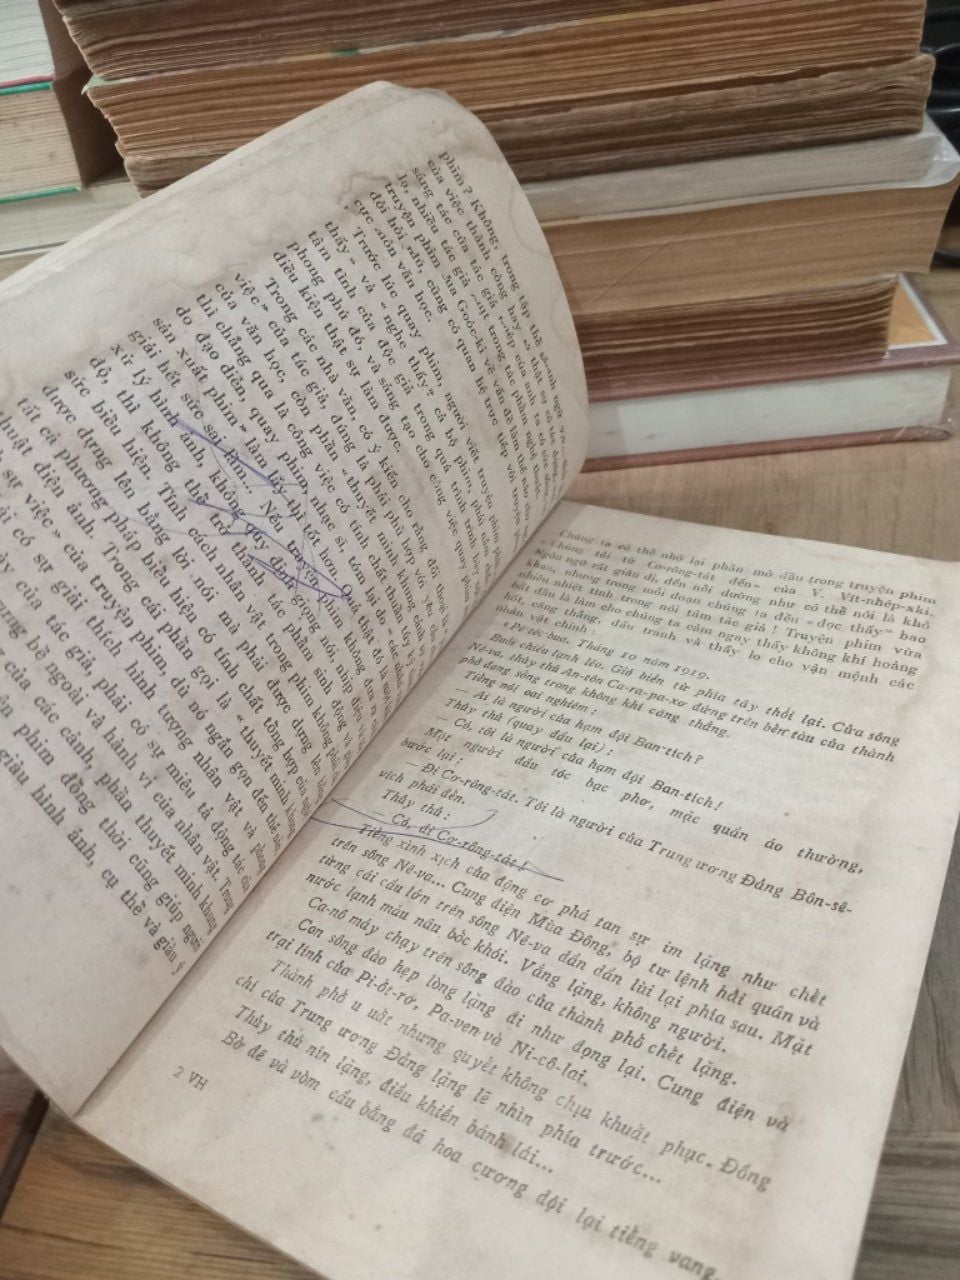 phim? Không, trong tập thể
của việc thành công hay
sáng tác của tác giả
lạ, nhiều tác giả
truyện phim. Goóc-ki về vấn đề làm thế nào cho
đòi hỏi đó, cũng có quan hệ trực tiếp với truyện phim
cực môn văn học.
Trước lúc quay phim, người viết truyện phim phải
thấy» và «nghe thấy» cả bộ phim, phải nắm
tâm tình của độc giả trong quá trình trình bày
phong phú đó, và sáng tạo cho công việc quay phim
điều kiện thật sự làm được.
Trong các nhà văn, có ý kiến cho rằng đối thoại là
việc» của tác giả, đúng là phải phù hợp với yêu
của văn học, còn phần «thuyết minh khung
thì chẳng qua là công việc có tính chất thuần túy kỹ
do đạo diễn, quay phim, nhạc sĩ, tóm lại do «các nhà
sản xuất phim» làm lấy thì tốt hơn. Quả thật đó là một
giải hết sức sai lầm... Nếu truyện phim không đưa ra
xử lý hình ảnh, không quy định giọng nói, nhịp điệu và
độ, thì không thể trở thành tác phẩm sinh động và
sức biểu hiện. Tính cách nhân vật trong phim không phải
được dựng lên bằng lời nói mà phải được dựng lên bằng
tất cả phương pháp biểu hiện có tính chất tổng hợp của
thuật điện ảnh. Trong cái phần gọi là «thuyết minh khung
sự việc» của truyện phim, dù nó ngắn gọn đến thế nào
có sự giải thích hình tượng nhân vật và phương
của tác giả, phải có sự miêu tả động tác của
bề ngoài và hành vi của nhân vật. Trong
của các cảnh, phần thuyết minh khung
phim đồng thời cũng giúp người
giàu hình ảnh, cụ thể và giàu ý
Chúng ta có thể nhớ lại phần mở đầu trong truyện phim
«Chúng tôi từ Cơ-rông-tát đến» của V. Vít-nhép-xki.
Ngôn ngữ rất giản dị, đến nỗi dường như có thể nói là khô
khan, nhưng trong mỗi đoạn chúng ta đều «đọc thấy» bao
nhiêu nhiệt tình trong nội tâm tác giả! Truyện phim vừa
bắt đầu là làm cho chúng ta cảm ngay thấy không khí hoảng
hốt, căng thẳng, đấu tranh và thấy lo cho vận mệnh các
nhân vật chính:
«Pê-téc-bua. Tháng 10 năm 1919.
Buổi chiều lạnh lẽo. Gió biển từ phía tây thổi lại. Cửa sông
Nê-va, thủy thủ An-tôn Ca-ra-pa-xơ đứng trên bến tàu của thành
phố đang sống trong không khí căng thẳng.
Tiếng nói oai nghiêm:
— Ai là người của hạm đội Ban-tích?
Thủy thủ (quay đầu lại):
— Có, tôi là người của hạm đội Ban-tích!
Một người đầu tóc bạc phơ, mặc quần áo thường,
bước lại:
— Đi Cơ-rông-tát. Tôi là người của Trung ương Đảng Bôn-sê-
vích phái đến.
Thủy thủ:
— Có, đi Cơ-rông-tát!
Tiếng xình xịch của động cơ phá tan sự im lặng như chết
trên sông Nê-va... Cung điện Mùa Đông, bộ tư lệnh hải quân và
từng cái cầu lớn trên sông Nê-va dần dần lùi lại phía sau. Mặt
nước lạnh màu nâu bốc khói. Vắng lặng, không người.
Ca-nô máy chạy trên sông đào của thành phố chết lặng.
Con sông đào hẹp lòng lặng đi như đọng lại. Cung điện và
trại lính của Pi-ốt-rơ, Pa-ven và Ni-cô-lai.
Thành phố u uất nhưng quyết không chịu khuất phục. Đồng
chí của Trung ương Đảng lặng lẽ nhìn phía trước...
Thủy thủ nín lặng, điều khiển bánh lái...
Bờ đê và vòm cầu bằng đá hoa cương dội lại tiếng vang.
2 VH